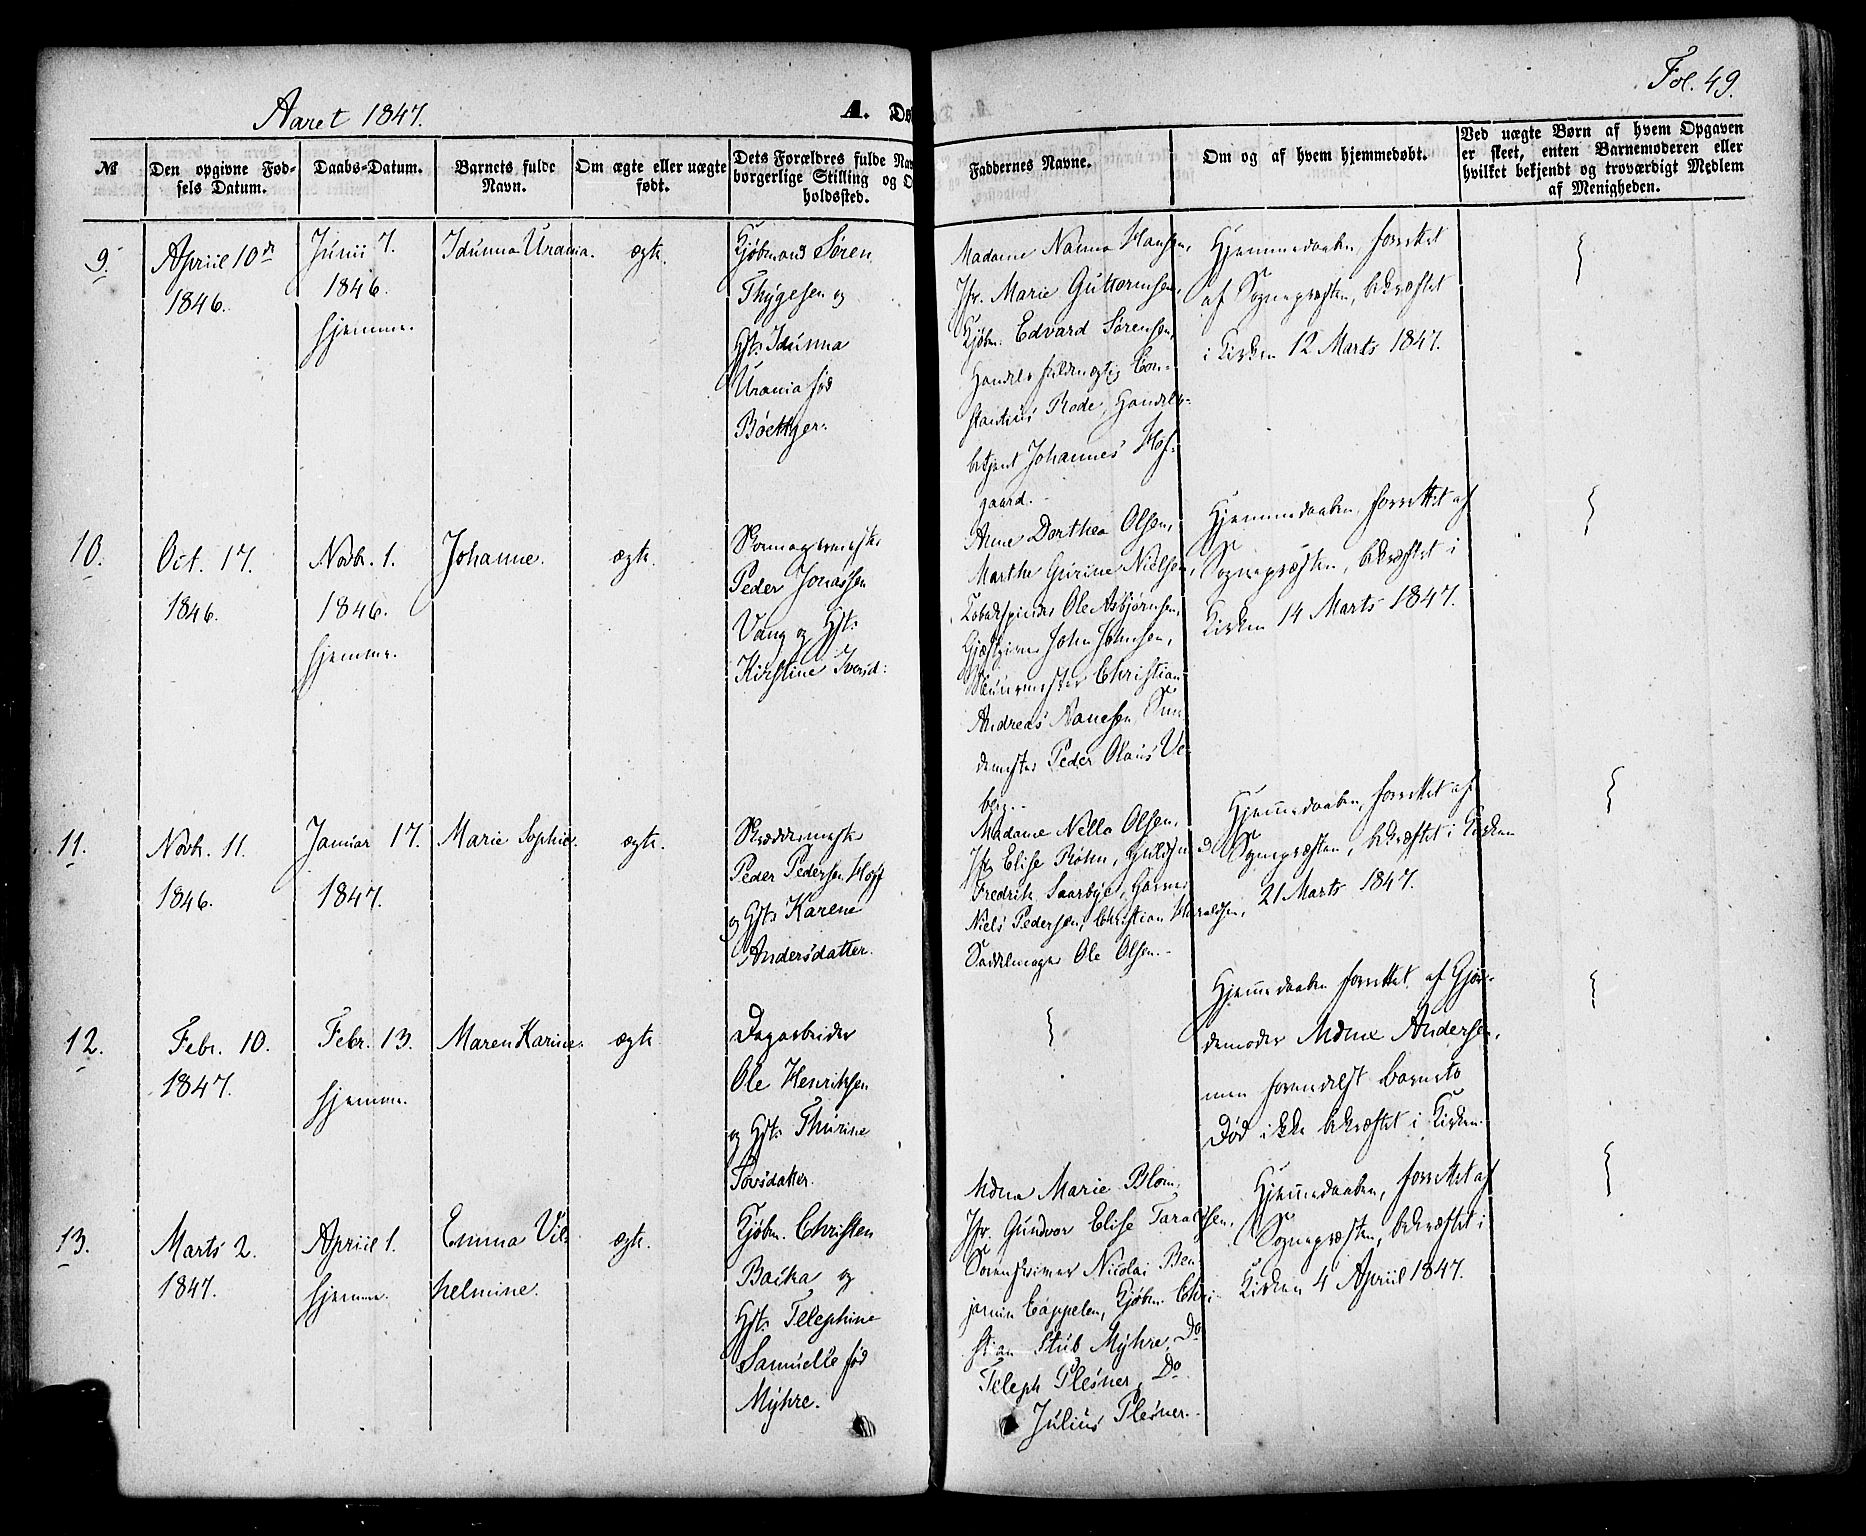 Aaret 1847.
A. Dø
Fol. 49.
№
Den opgivne Fød-
sels Datum.
Daabs-Datum.
Barnets fulde
Navn.
Om ægte eller uægte
født.
Dets Forældres fulde Nav
borgerlige Stilling og O
holdssted.
Faddernes Navne.
Om og af hvem hjemmedøbt.
Ved uægte Børn af hvem Opgaven
er skeet, enten Barnemoderen eller
hvilket bekjendt og troværdigt Medlem
af Menigheden.
9.
Apriil 10de
1846.
Junii 7.
1846.
hjemme.
Idunna Urania.
ægte.
Kjøbmand Søren
Thygesen og
Hst: Idunna
Urania fød
Böettger.
Madame Nanna Hansen,
Jfr. Marie Guttormsen,
Kjøbm. Edvard Sørensen,
Handelsfuldmægtig Con-
stantius Rode, Handels-
betjent Johannes Hof-
gaard.
Hjemmedaaben forrettet
af Sognepresten, bekræftet
i Kirken 12 Marts 1847.
10.
Oct. 17.
1846.
Novbr. 1.
1846.
hjemme.
Johanne.
ægte.
Skomagermester
Peder Jonassen
Vang og Hst:
Kirstine Iversd:
Anne Dorthea Olsen,
Marthe Gurine Nielsen,
Ole Asbjørnsen,
Gjæstgiver John Johnsen,
Skuermester Christian
Andreas Nanesen,
Peder Olaus Ve-
berg.
Hjemmedaaben, forrettet af
Sognepræsten, bekræftet i
Kirken 14 Marts 1847.
11.
Novbr. 11.
1846.
Januar 17.
1847.
Marie Sophie.
ægte.
Skræddermester
Peder Pedersen Hoff
og Hst: Karene
Andersdatter.
Madame Nella Olsen,
Jfr. Elise Røhn,
Fredrik Saarbye, Garver
Niels Pedersen, Christian Haraldsen,
Sadelmager Ole Olsen.
Hjemmedaaben, forrettet af
Sognepræsten, bekræftet i Kirken
21 Marts 1847.
12.
Febr. 10.
1847.
Febr. 13.
hjemme.
Maren Karine.
ægte
Dagarbeider
Ole Henriksen
og Hst: Thurine
Torsdatter.
Hjemmedaaben forrettet af Gjor-
demoder Mdme Andersen,
men formedelst Barnets
Død ikke bekræftet i Kirken.
13.
Marts 2.
1847.
Apriil 1.
hjemme.
Emma Vil-
helmine.
ægte.
Kjøbm. Christen
Backa og
Hst: Telephine
Samuelle fød
Myhre.
Mdme Marie Blom,
Jfr. Gundvor Elise Taraldsen,
Sorenskriver Nicolai Ben-
jamin Cappelen, Kjøbm. Chri-
stian Stub Myhre, Do
Teleph Plesner, Do
Julius Plesner.
Hjemmedaaben, forrettet af
Sognepræsten, bekræftet i
Kirken 4 Apriil 1847.